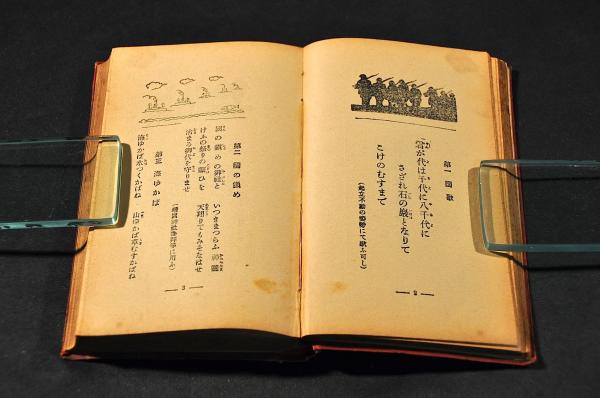 第一 國歌
君が代は千代に八千代に
さざれ石の巌となりて
こけのむすまで
(起立不動の姿勢にて歌ふ可し)
— 2 —
第二 國の鎮め
國の鎮めの御社と いつきまつらふ 神靈
けふの祭りの賑ひを 天翔りてもみそなはせ
治まる御代を守りませ
第三 海ゆかば
海ゆかば水つくかばね 山ゆかば草むすかばね
— 3 —